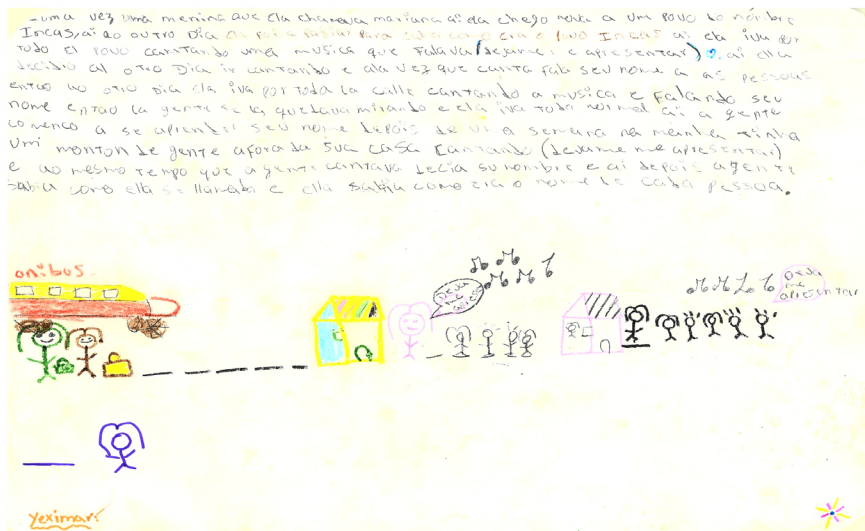 - uma vez uma menina que ela chamava mariana ai ela chego nova a um povo do nombre
Incas, ai ao outro Dia ela foi a pasiar para saber como era o povo Incas ai ela iva por
todo el povo cantando uma musica que falava (dejame me apresentar) ai ella
decidio al otro Dia ir cantando e a la vez que canta fala seu nome a as pessoas
entao ao otro dia ela iva por toda la calle cantando a musica e falando seu
nome entao la gente se la quedava mirando e ela iva toda normal ai a gente
comenco a se aprender seu nome depois de uma semana na meinha tinha
um monton de gente afora da sua casa cantando (dejame me apresentar)
e ao mesmo tempo que a gente cantava decia su nombre e ai depois a gente
sabia como ella se llamaba e ella sabia como era o nome de cada pessoa.
onibus.
Deja
me
apresentar
Deja
me
apresentar
Yeximar